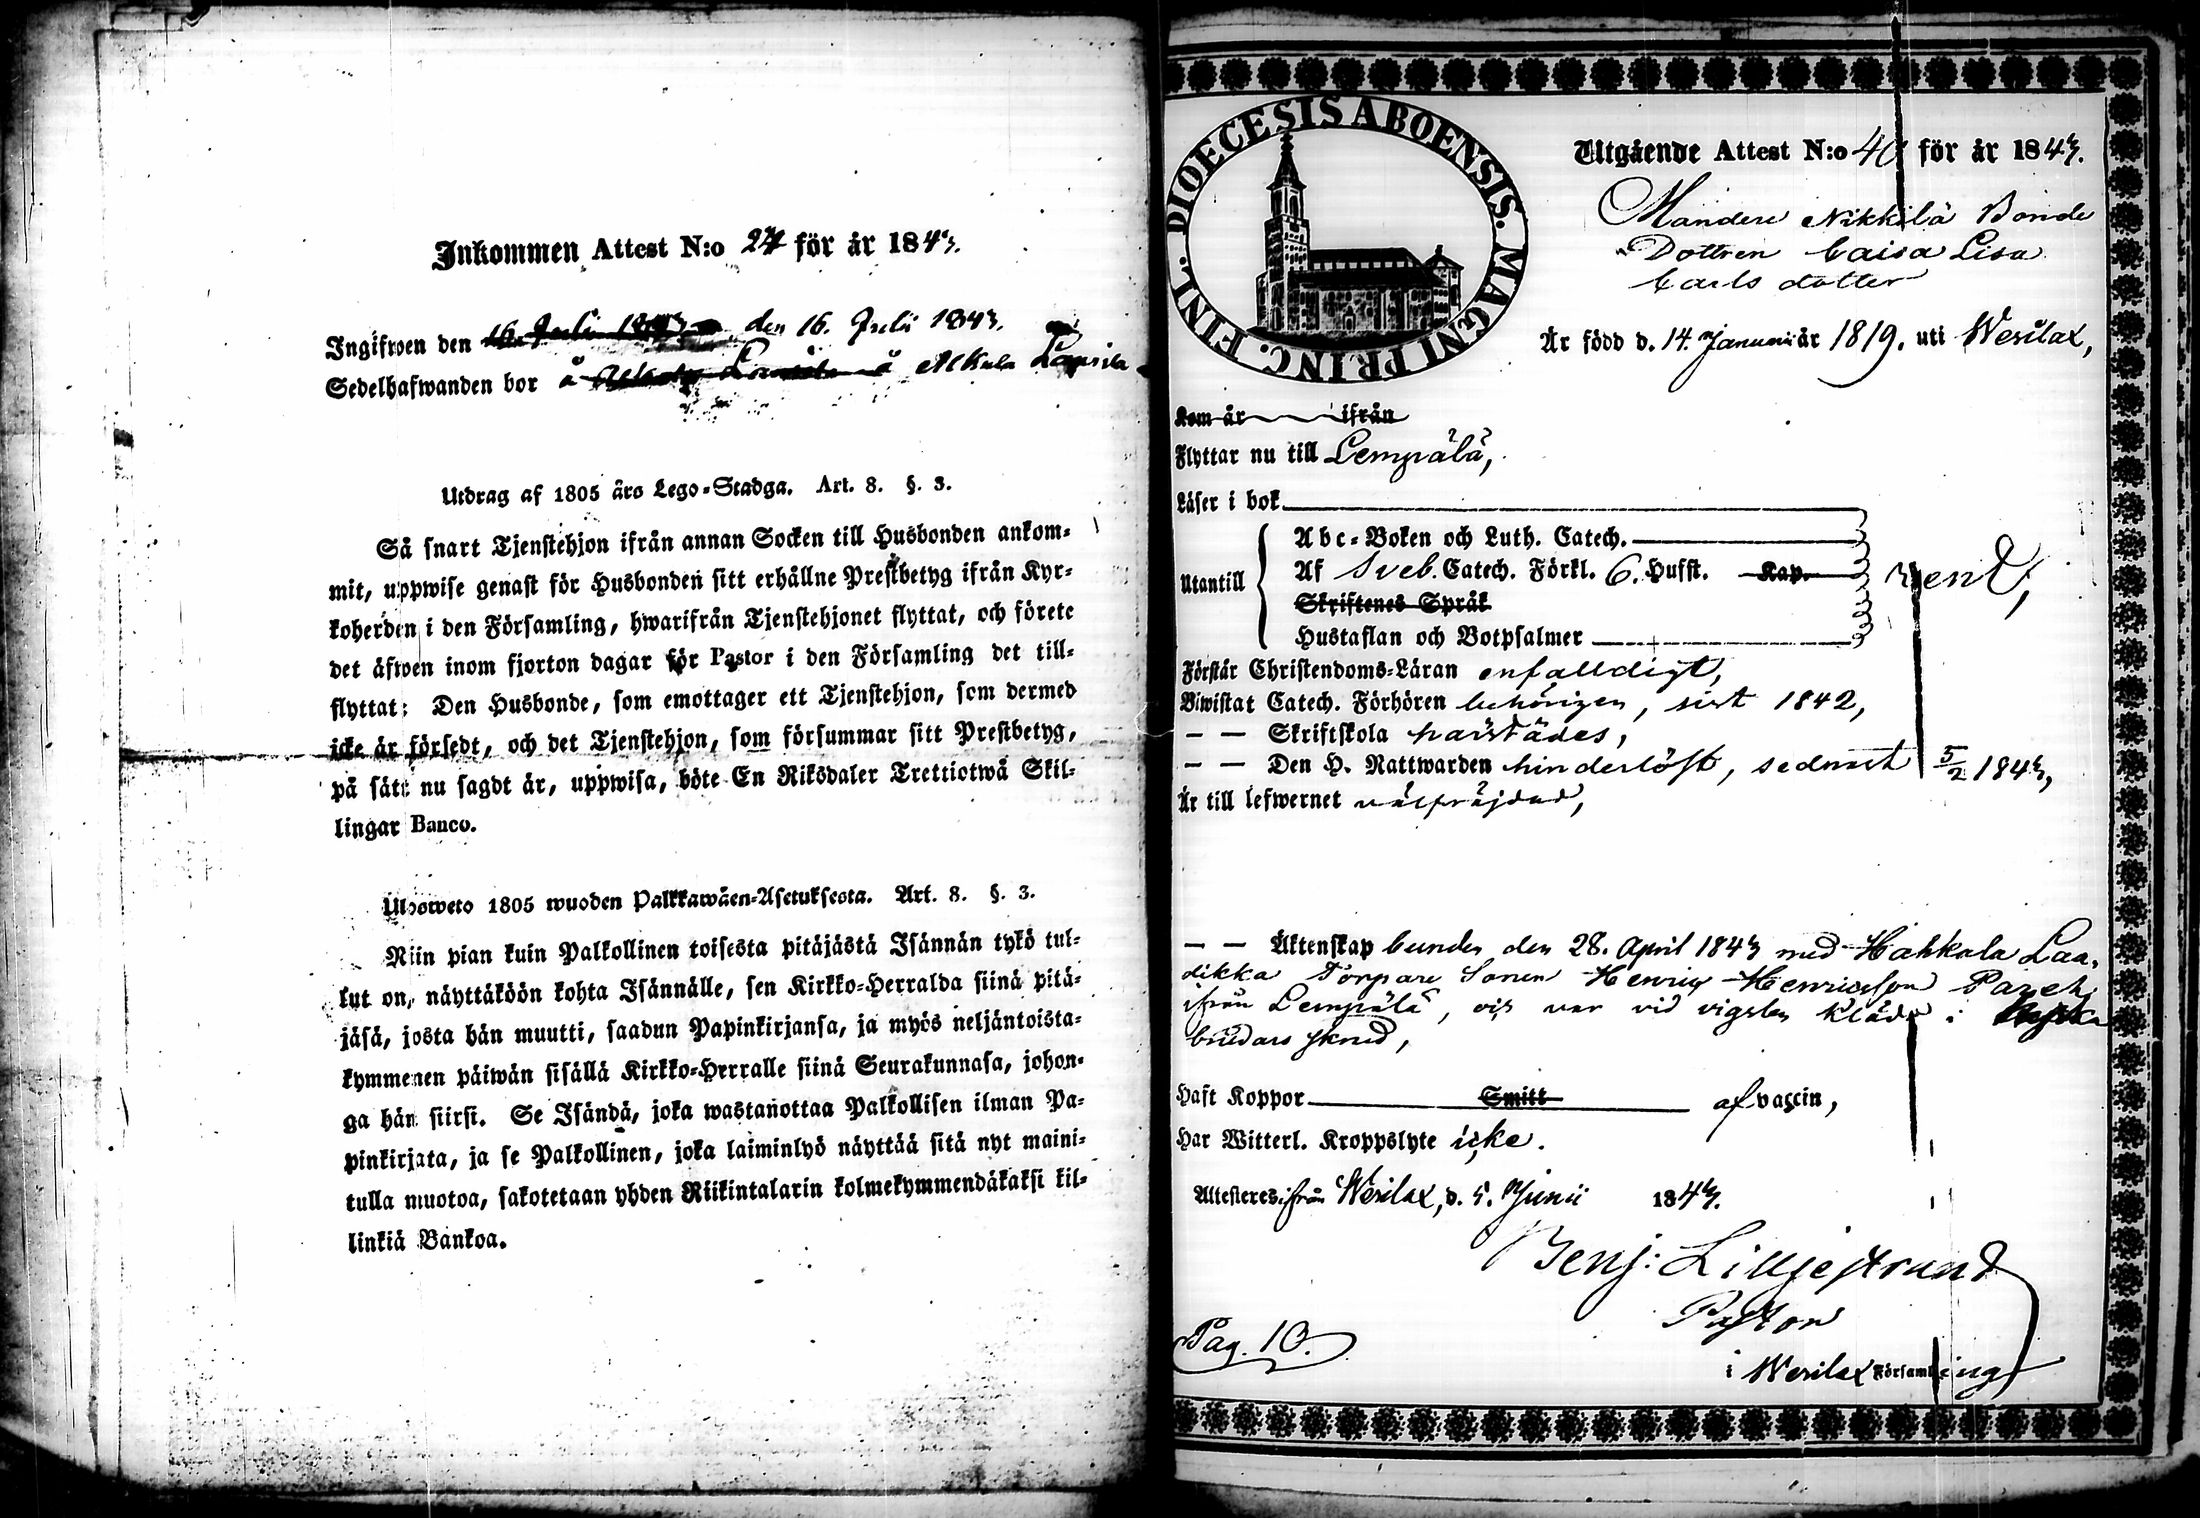 Inkommen Attest N:o 24 för år 1843.
Ingifwen den 16. Juli 1843 den 16. Juli 1843.
Sedelhafwanden bor å å Alkula
Utdrag af 1805 års Lego-Stadga. Art. 8. §. 3.
Så snart Tjenstehjon ifrån annan Socken till Husbonden ankom-
mit, uppwise genast för Husbonden sitt erhållne Prestbetyg ifrån Kyr-
koherden i den Församling, hwarifrån Tjenstehjonet flyttat, och förete
det äfwen inom fjorton dagar för Pastor i den Församling det till-
flyttat: Den Husbonde, som emottager ett Tjenstehjon, som dermed
icke är försedt, och det Tjenstehjon, som försummar sitt Prestbetyg,
på sätt nu sagdt är, uppwisa, böte En Riksdaler Trettiotwå Skil-
lingar Banco.
Ulosweto 1805 wuoden Palkkawäen-Asetuksesta. Art. 8. §. 3.
Niin pian kuin Palkollinen toisesta pitäjästä Isännän tykö tul-
lut on, näyttäköön kohta Isännälle, sen Kirkko-Herralda siinä pitä-
jäsä, josta hän muutti, saadun Papinkirjansa, ja myös neljäntoista-
kymmenen päiwän sisällä Kirkko-Herralle siinä Seurakunnasa, johon-
ga hän siirsi. Se Isändä, joka wastanottaa Palkollisen ilman Pa-
pinkirjata, ja se Palkollinen, joka laiminlyö näyttää sitä nyt maini-
tulla muotoa, sakotetaan yhden Riikintalarin kolmekymmendäkaksi kil-
linkiä Bankoa.
DIOECESIS ABOENSIS. MAGNI PRINC. FINL.
Utgående Attest N:o 40 för år 1843.
Mandere Nikkilä Bonde
Dottren Caisa Lisa
Carls dotter
Är född d. 14. Januari år 1819. uti Wesilax,
Kom år ifrån
Flyttar nu till Lempälä,
Läser i bok
Abc-Boken och Luth. Catech.
Utantill Af Sveb. Catech. Förkl. 6. Hufst. Kap. rent,
Skriftenes Språk
Hustaflan och Botpsalmer
Förstår Christendoms-Läran enfalldigt,
Biwistat Catech. Förhören behörigen, sist 1842,
— — Skriftskola härstädes,
— — Den H. Nattwarden hinderlöst, sednast 5/2 1843,
Är till lefwernet välfräjdad,
— — Äktenskap bunden den 28. April 1843 med Hahkala Laa-
dikka Torpare Sonen Henrix Henricsson
ifrån Lempälä, och var vid vigslen klädd i
brudars skrud,
Haft Koppor Smitt af vaccin,
Har Witterl. Kroppslyte icke.
Attesteres ifrån Wesilax, d. 5. Junii 1843.
Benj: Lilljestrand
Pastor
Pag. 10.
i Wesilax Församling